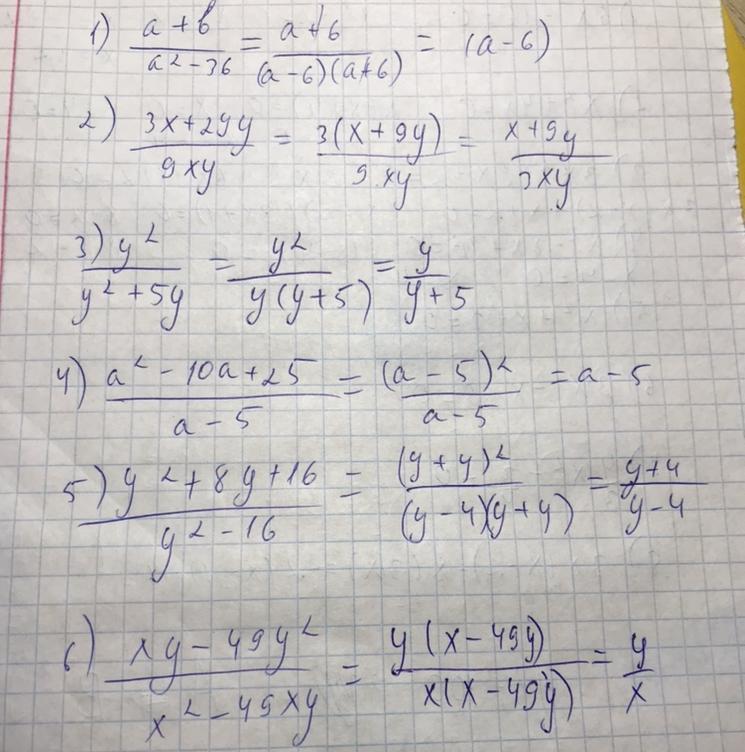 1) a+6/a²-36 = a+6/(a-6)(a+6) = (a-6)
2) 3x+29y/9xy = 3(x+9y)/9xy = x+9y/3xy
3) y²/y²+5y = y²/y(y+5) = y/y+5
4) a²-10a+25/a-5 = (a-5)²/a-5 = a-5
5) y²+8y+16/y²-16 = (y+4)²/(y-4)(y+4) = y+4/y-4
6) xy-49y²/x²-49xy = y(x-49y)/x(x-49y) = y/x